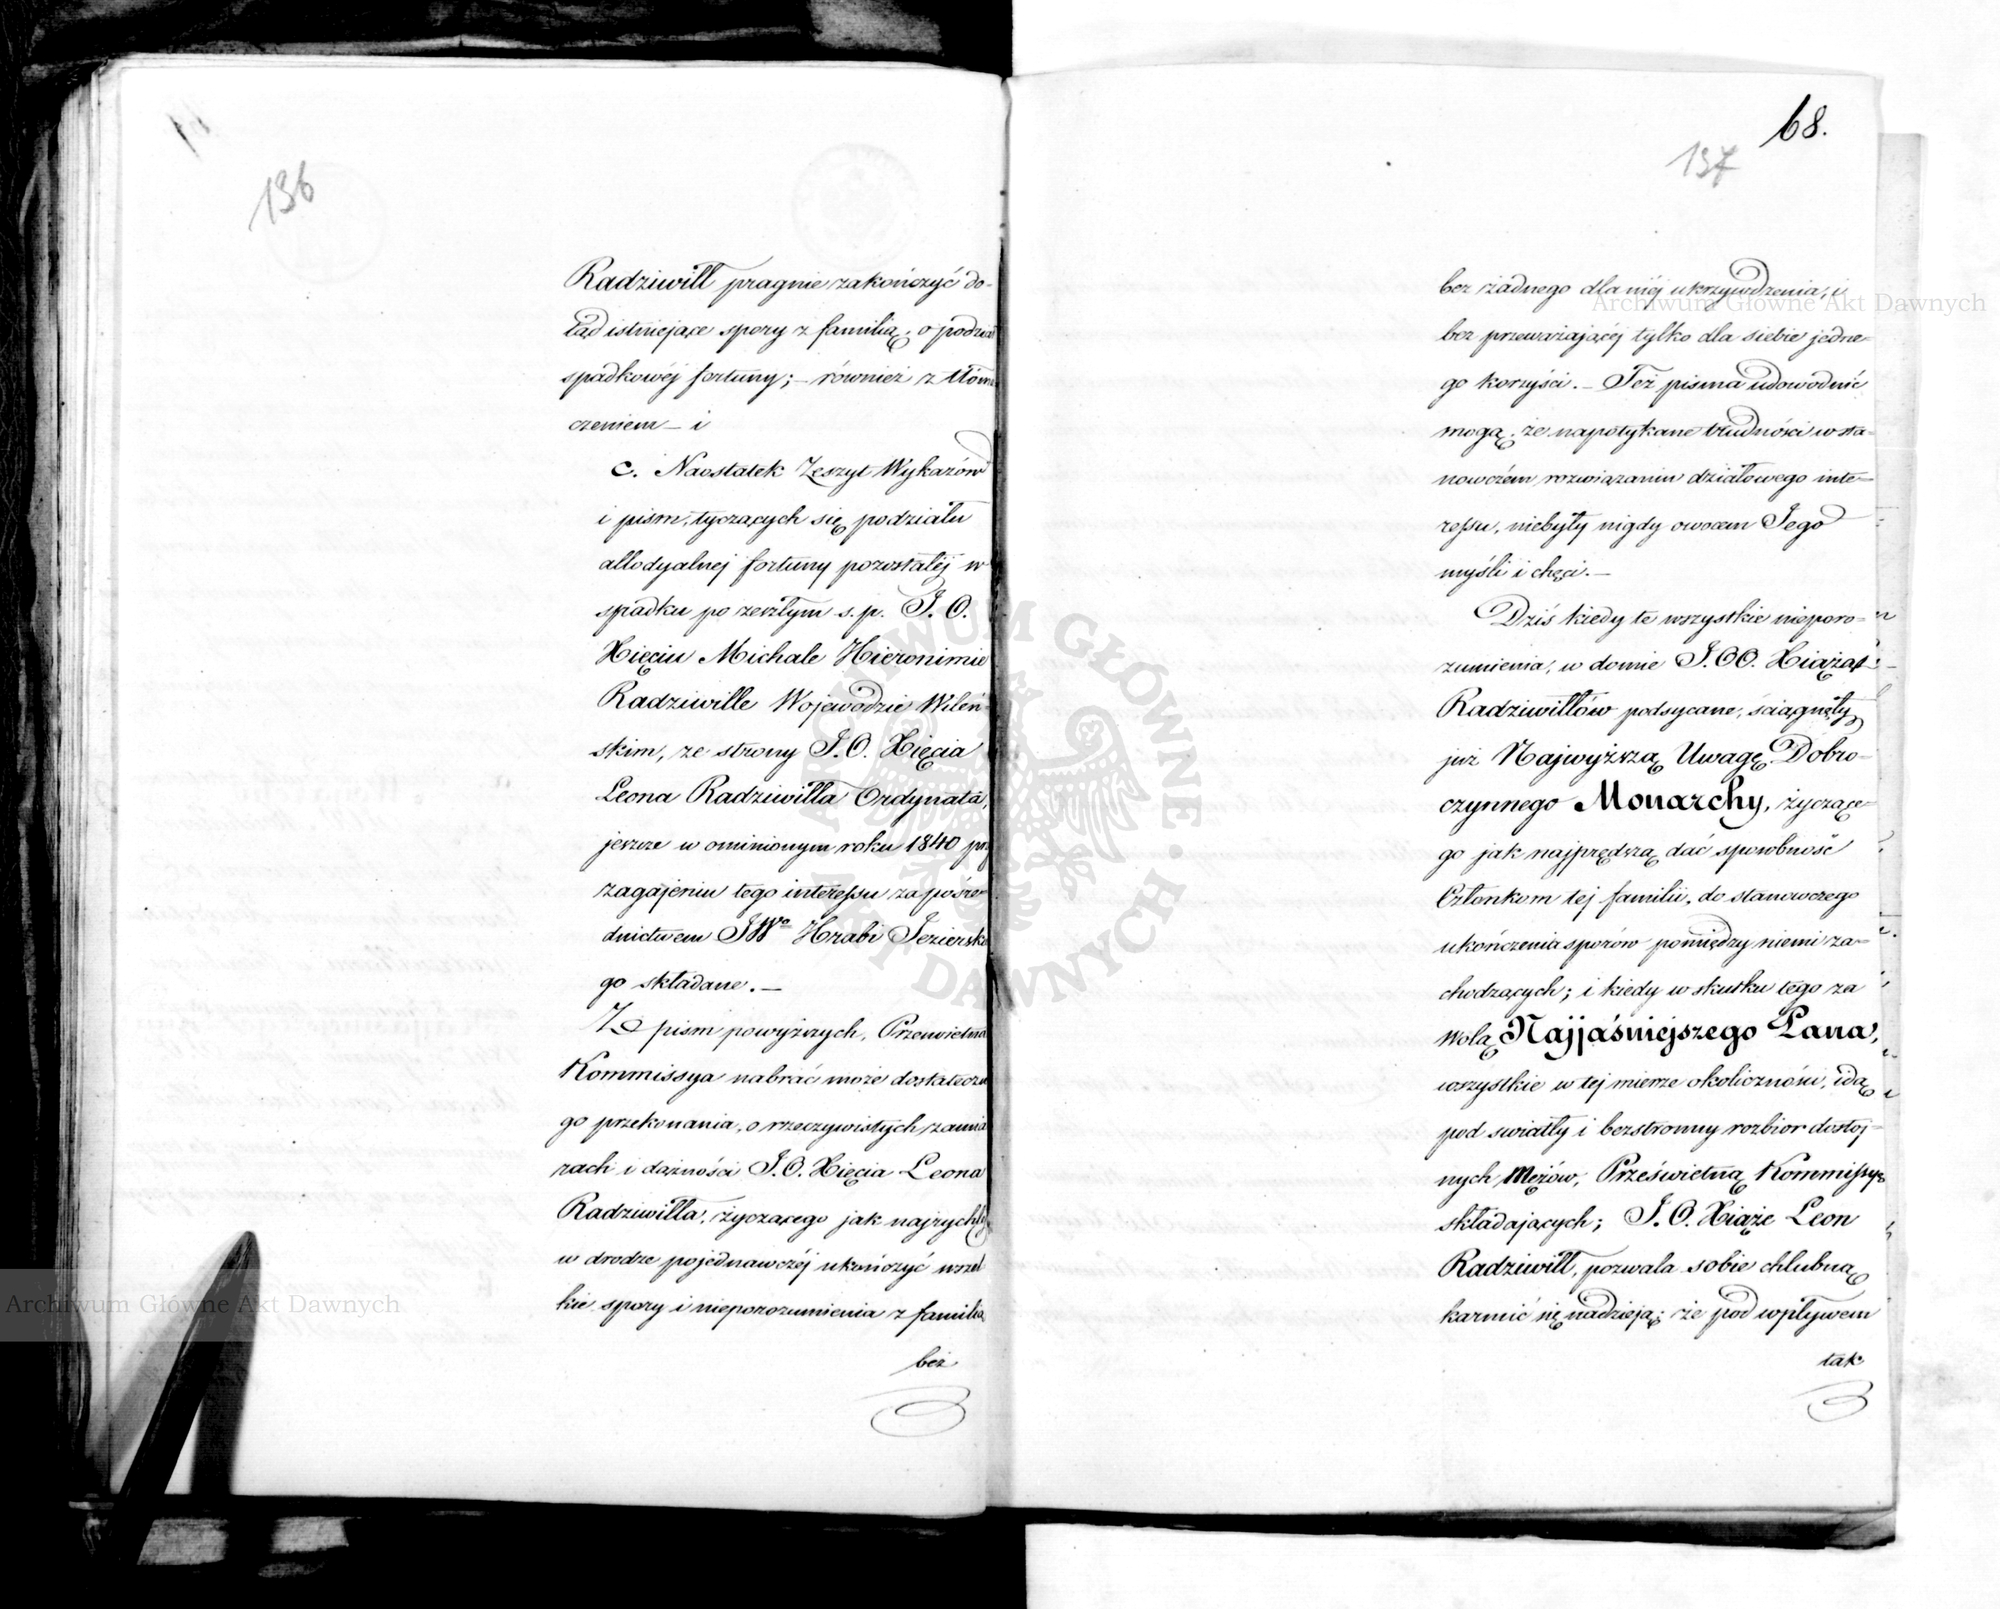 136
Radziwiłł pragnie zakończyć do-
tąd istniejące spory z familią, o podział
spadkowéj fortuny; – również z tłóma
czeniem – i
c. Naostatek Zeszyt Wykazów
i pism, tyczących się podziału
allodyalnej fortuny pozostałéj w
spadku po zeszłym s.p. J. O.
Xięciu Michale Hieronimie
Radziwille Wojewodzie Wileń-
skim, ze strony J. O. Xięcia
Leona Radziwiłła Ordynata,
jeszcze w ominionym roku 1840 przy
zagajeniu tego interessu za pośre-
dnictwem JWo Hrabi Jezierskie
go składane. –
Z pism powyższych, Przeswietna
Kommissya nabrać może dostateczne
go przekonania, o rzeczywistych zamia
rach i dążności J. O. Xięcia Leona
Radziwiłła, życzącego jak najrychléj
w drodze pojednawczéj ukończyć wszel
kie spory i nieporozumienia z familią
bez
68.
137
bez żadnego dla niéj ukrzywdzenia, i
bez przeważającéj tylko dla siebie jedne-
go korzyści. – Też pisma udowodnić
mogą, że napotykane trudności w sta-
nowczém rozwiązaniu działowego inte-
ressu, niebyły nigdy owocem Jego
myśli i chęci. –
Dziś kiedy te wszystkie nieporo-
zumienia, w domie J. OO. Xiążąt
Radziwiłłów podsycane, ściągnęły
już Najwyższą Uwagę Dobro-
czynnego Monarchy, życzące-
go jak najprędszą dać sposobność
Członkom tej familii, do stanowczego
ukończenia sporów pomiędzy niemi za-
chodzących; i kiedy w skutku tego za
Wolą Najjaśniejszego Pana,
wszystkie w tej mierze okoliczności, idą
pod swiatły i bezstronny rozbior dostoj-
nych Mężów, Prześwietną Kommissyę
składających; J. O. Xiąże Leon
Radziwiłł, pozwala sobie chlubną
karmić się nadzieją; że pod wpływem
tak
Archiwum Główne Akt Dawnych
Archiwum Główne Akt Dawnych
ARCHIWUM GŁÓWNE AKT DAWNYCH